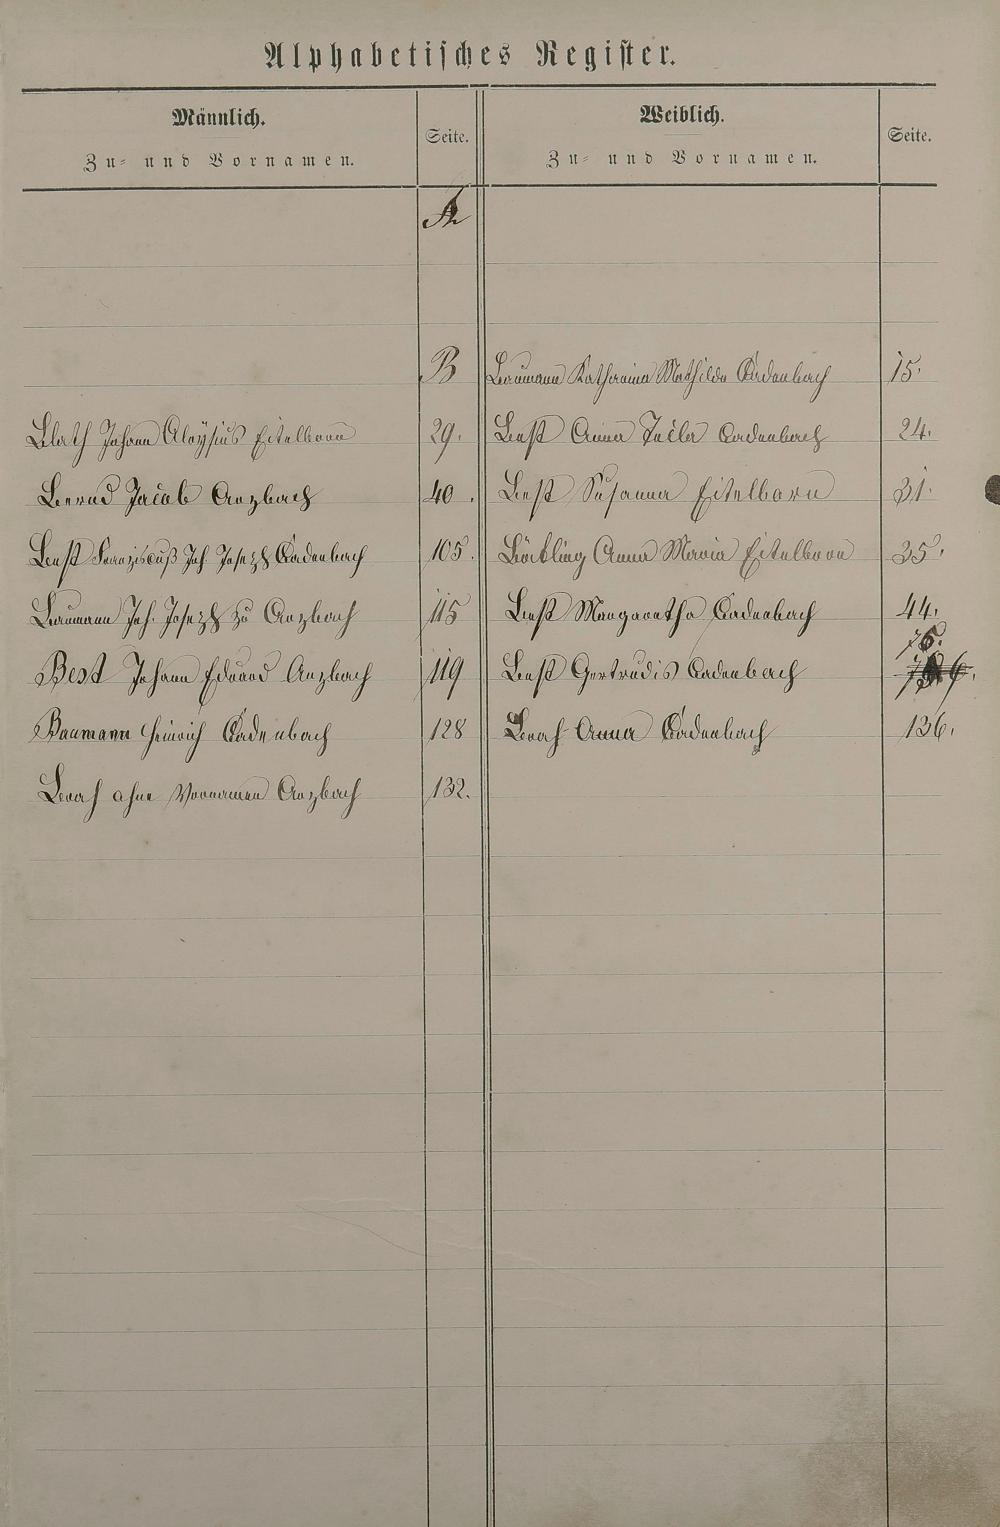 Alphabetisches Register.
Männlich. Seite. Weiblich. Seite.
Zu- und Vornamen. Zu- und Vornamen.
A
B Baumann Katharina Mathilde Cadenbach 15.
Blath Johann Aloÿsius Eitelborn 29. Best Anna Cadenbach 24.
Bernd Jacob Arzbach 40. Best Susanna Eitelborn 31.
Best Franziscus Joh. Joseph Cadenbach 105. Böckling Anna Maria Eitelborn 35.
Baumann Joh. Joseph zu Arzbach 115 Best Margaretha Cadenbach 44.
Best Johann Eduard Arzbach 119 Best Gertrudis Cadenbach 76.
Baumann Heinrich Cadenbach 128 Anna Cadenbach 136.
ohne Vornamen Arzbach 132.